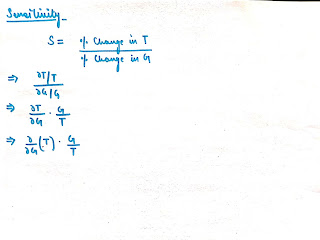 Sensitivity
S = % Change in T / % Change in G
⇒ ∂T/T / ∂G/G
⇒ ∂T/∂G · G/T
⇒ ∂/∂G (T) · G/T